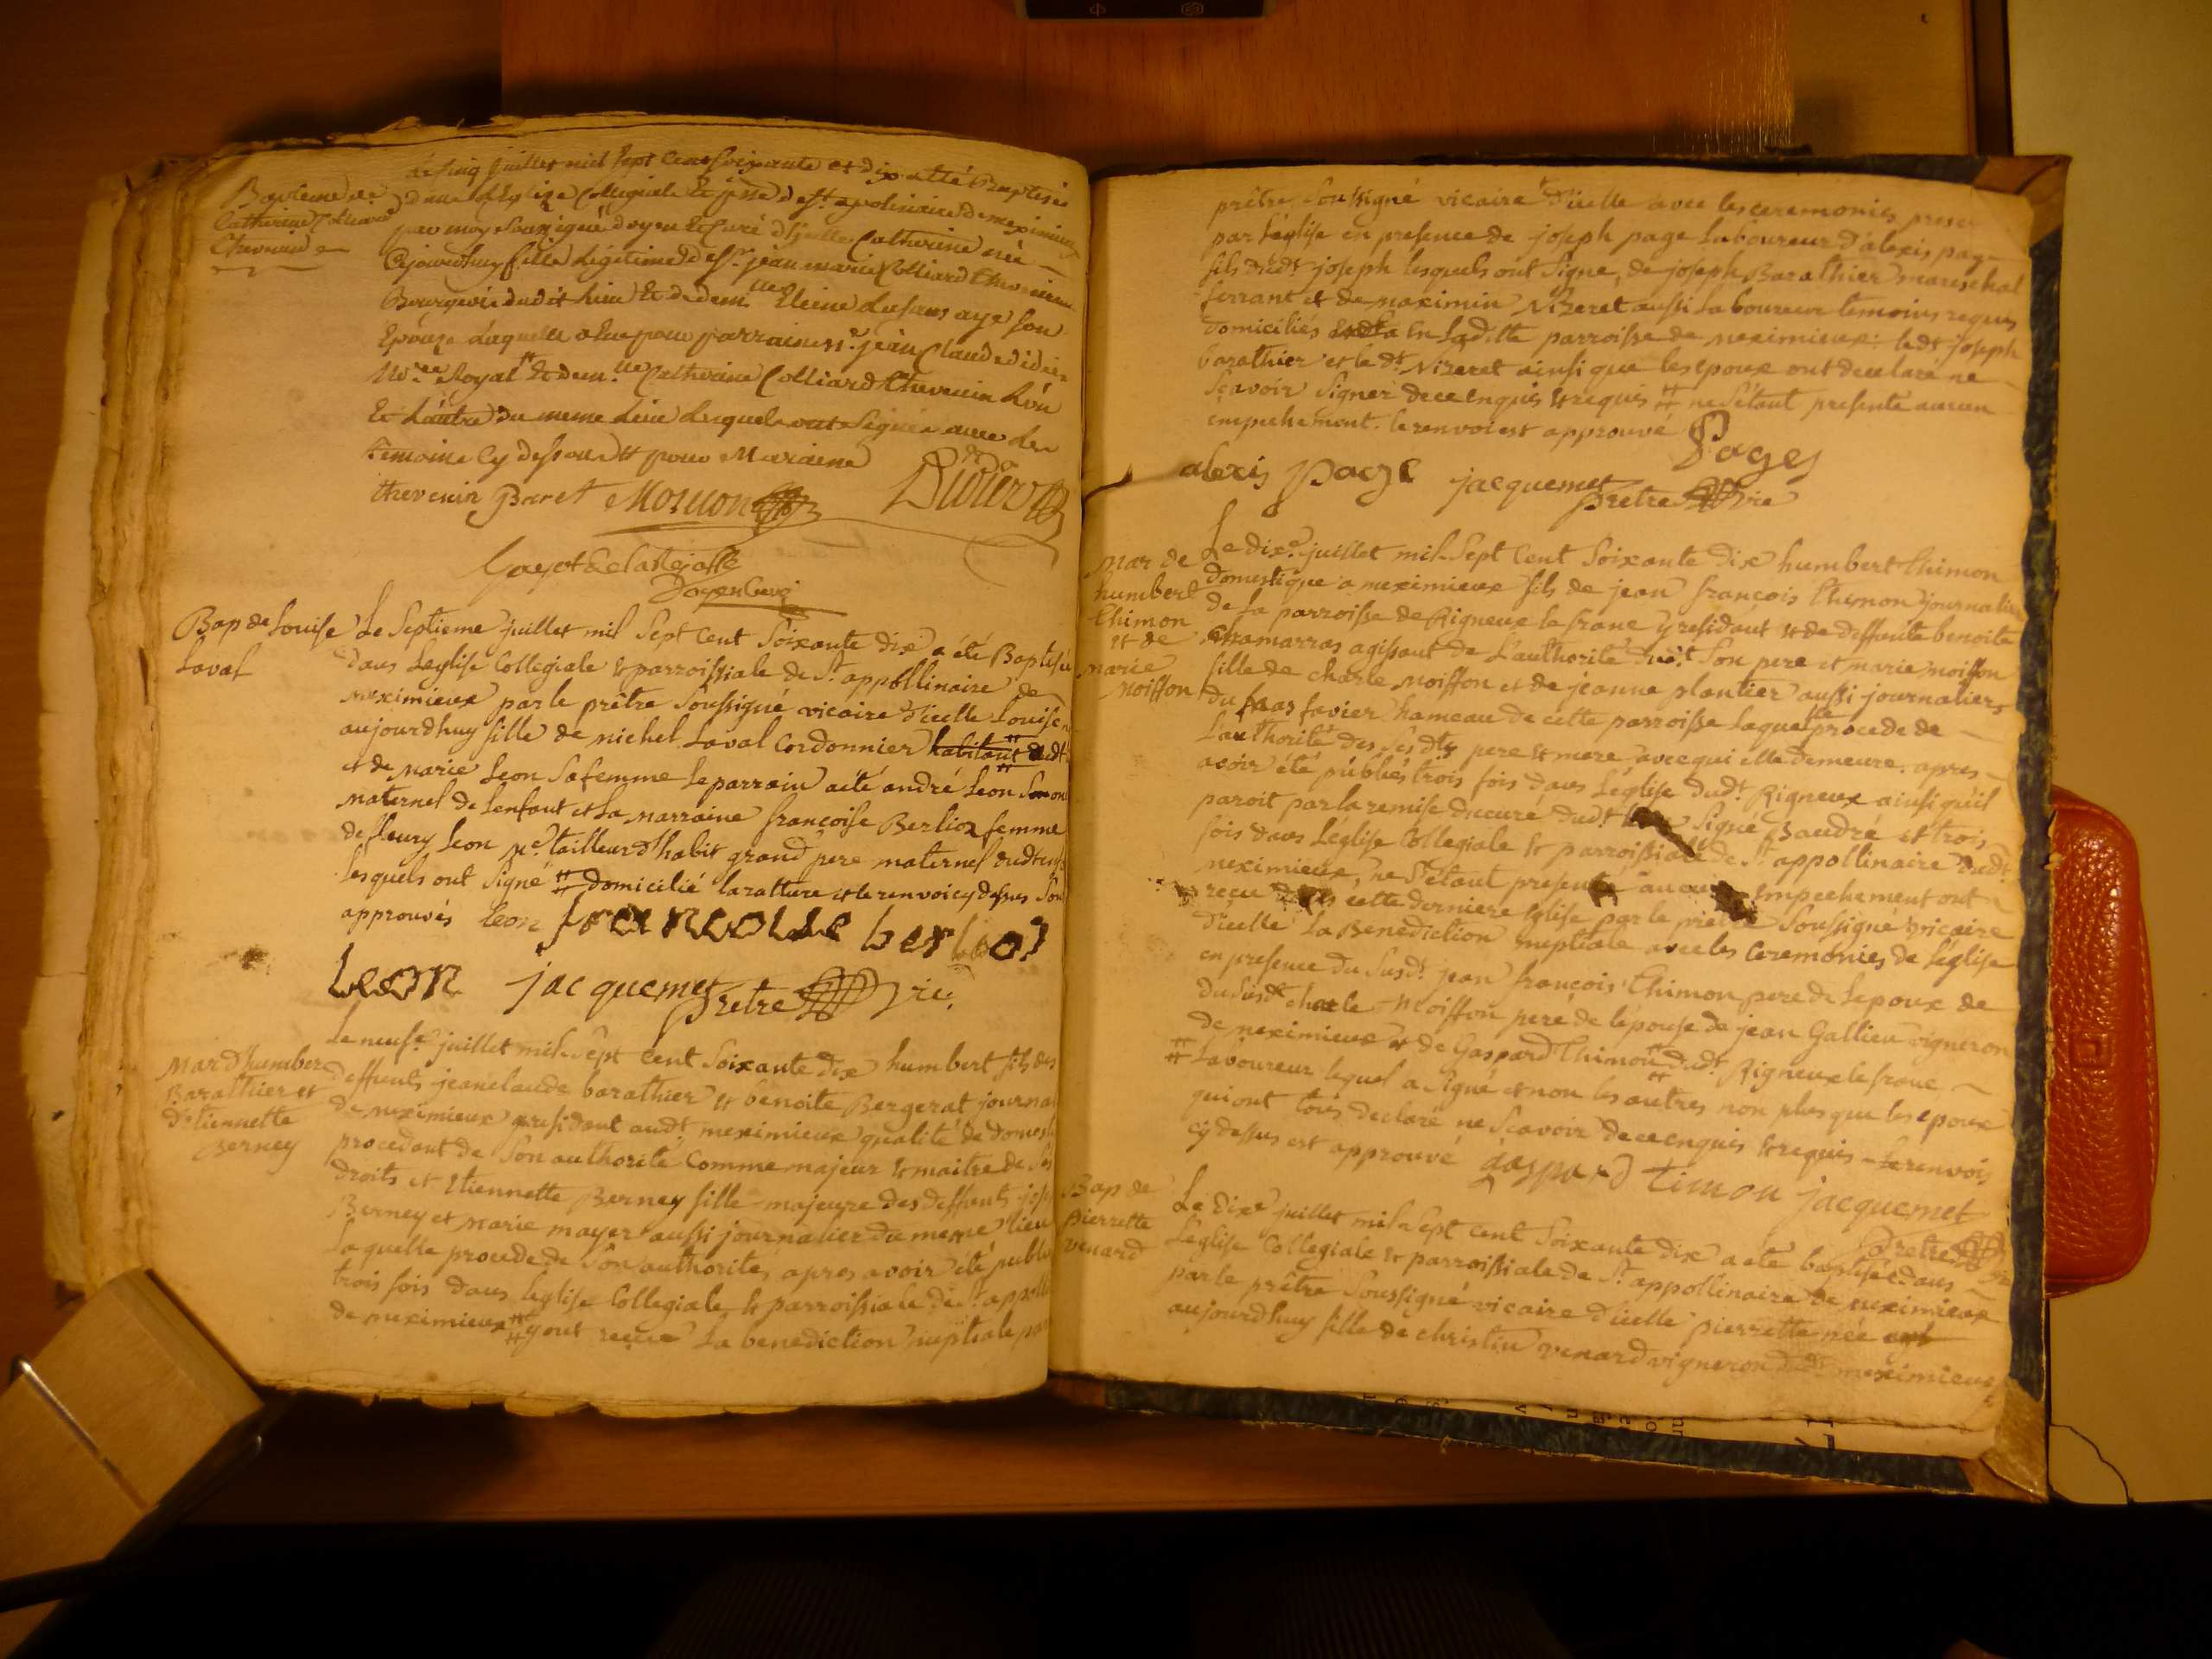 Le cinq juillet mil sept cent soixante et dix a été Baptisée
Bapteme de
Catherine Colliard
Thevenin
dans L'Eglize Collegiale et psse de st apolinaire de meximieux
par moy soussigné doyen et Curé d'Icelle Catherine née
Cejourdhuy fille Légitime de sr jean marie Colliard thevenin
Bourgeois dudit lieu Et de dem.lle
Epouze Laquelle a Eu pour parrain sr. jean Claude didier
No.re Royal # Et dem.lle Catherine Colliard thevenin L'un
Et L'autre du meme Lieu Lesquels ont Signé avec les
temoins Cy dessous # pour Maraine
thevenin Baret Didier
Doyen Curé
Bap de Louise
Laval
Le Septieme juillet mil Sept Cent Soixante dix a été Baptisée
dans Leglise Collegiale & parroissiale de St. appollinaire de
meximieux par le prêtre Soussigné vicaire d'icelle Louise n
aujourdhuy fille de michel Laval Cordonnier habitant dudt
et de marie Leon Sa femme Le parrain a été andré Leon Son on
maternel de Lenfant et La marraine francoise Berlioz femme
de fleury Leon me. tailleur d'habit grand pere maternel dudt enf
Lesquels ont Signé # domicilié la rature et le renvoi cy dessus Son
approuvés Leon francoise berlioz
Leon jacquemet
Prêtre vic.
Mar d'humber
Barathier et
d'Etiennette
Berney
Le neufe. juillet mil Sept Cent Soixante dix humbert fils des
deffunts jean claude barathier & benoite Bergerat journa
de meximieux residant audt meximieux qualité de domest
procedant de Son authorité Comme majeur & maitre de Ses
droits et Etiennette Berney fille majeure des deffunts jose
Berney et marie mayer aussi journalier du meme lieu
Laquelle procede de Son authorité, apres avoir été publi
trois fois dans Leglise Collegiale & parroissiale de St. appolli
de meximieux # y ont reçue La benediction nuptiale pa
prêtre Soussigné vicaire d'icelle avec les ceremonies prescr
par L'église en presence de joseph page Laboureur d'alexis page
fils dudt joseph lesquels ont Signé, de joseph Barathier mareschal
ferrant et de maximin Nizeret aussi Laboureur temoins requis
domiciliés en Laditte parroisse de meximieux: ledt joseph
barathier et le dt Nizeret ainsi que les epoux ont declaré ne
Scavoir Signer de ce enquis & requis # ne S'étant presenté aucun
empechement. le renvoi est approuvé Pages
alexis page jacquemet
Prêtre vic
Mar de
humbert
Thimon
et de
marie
moiffon
Le dixe. juillet mil Sept Cent Soixante dix humbert Thimon
domestique a meximieux fils de jean françois Thimon journalier
de La parroisse de Rigneux le franc y residant & de deffunte benoite
Chamarras agissant de L'authorité dudt Son pere et marie moiffon
fille de charle moiffon et de jeanne plantier aussi journaliers
du mas favier hameau de cette parroisse Laquelle procede de
L'authorité des Ses dts pere & mere avec qui elle demeure. apres
avoir été publiés trois fois dans L'église dudt. Rigneux ainsi qu'il
paroit par la remise du curé dudt Signé Baudré et trois
fois dans L'église Collegiale & parroissiale de St appollinaire dudt.
meximieux, ne S'étant presenté aucun empechement ont
reçu dans cette derniere Eglise par le prêtre Soussigné vicaire
d'icelle La Benediction nuptiale avec les Ceremonies de L'église
en presence du Susdt. jean françois Thimon pere de Lepoux de
du Susdt charle moiffon pere de l'épouse de jean Gallieu vigneron
de meximieux & de Gaspard Thimon # dudt Rigneux le franc
# Laboureur lequel a Signé et non les autres non plus que les epoux
qui ont tous declaré ne Scavoir de ce enquis & requis le renvoi
cy dessus est approuvé gaspard Timon jacquemet
Prêtre vic
Bap de
pierrette
venard
Le dixe juillet mil Sept Cent Soixante dix a été baptisée dans
L'eglise Collegiale & parroissiale de St. appollinaire de meximieux
par le prêtre Soussigné vicaire d'icelle pierrette née
aujourdhuy fille de christin venard vigneron dudt meximieux